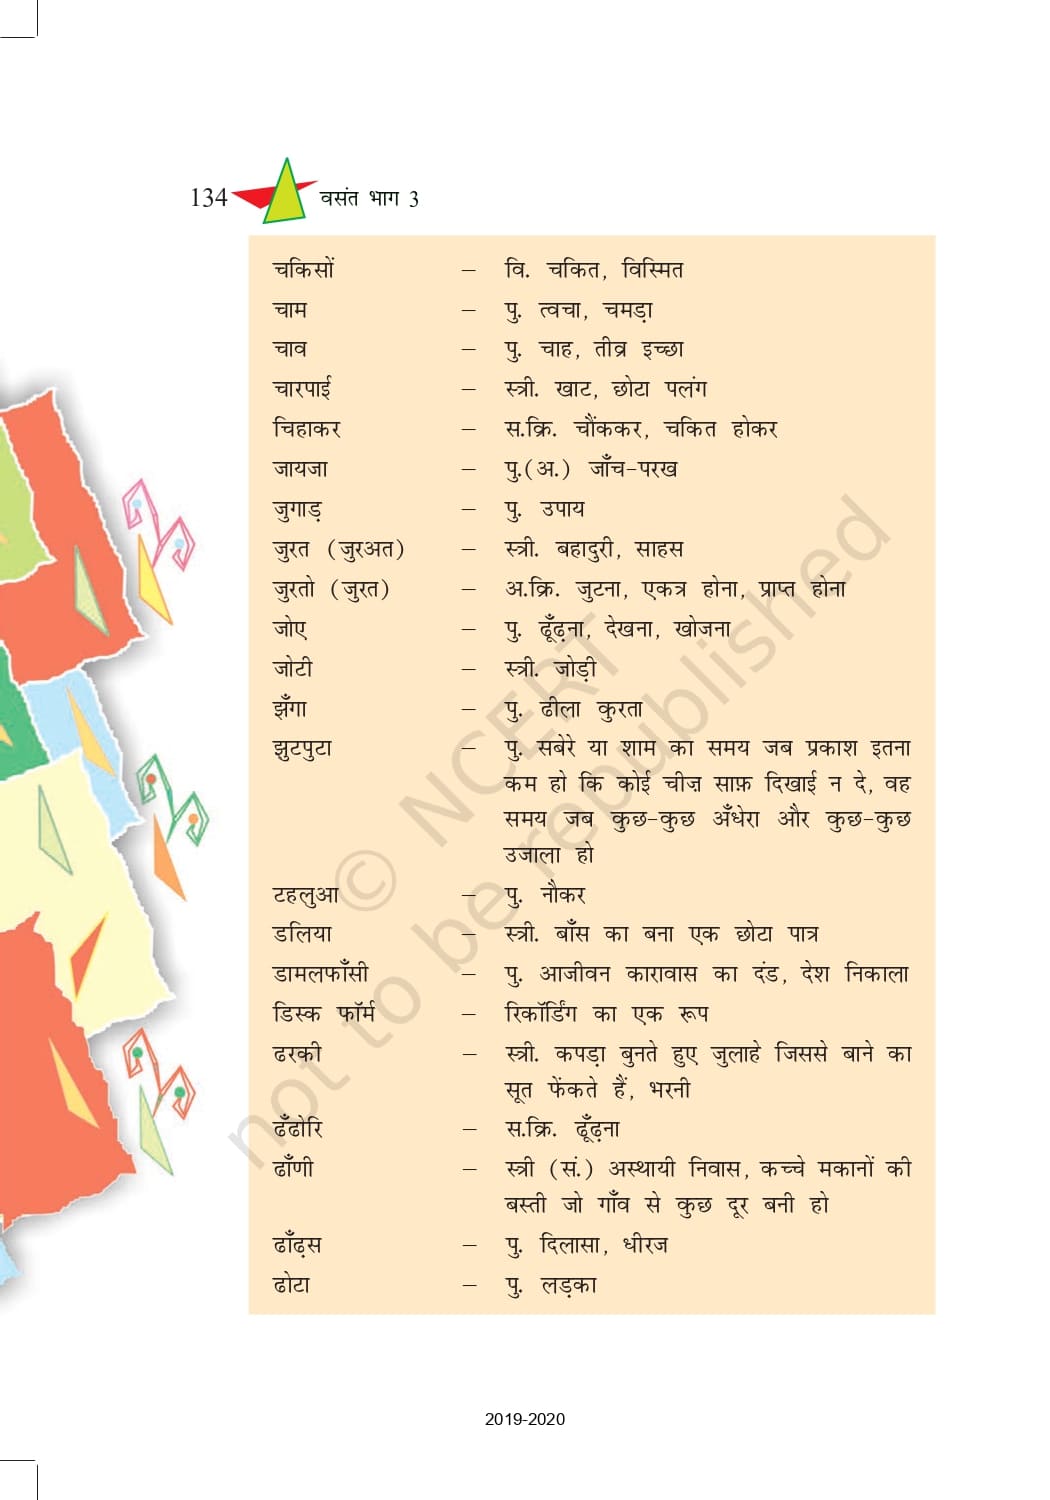 134 वसंत भाग 3
चकिसों – वि. चकित, विस्मित
चाम – पु. त्वचा, चमड़ा
चाव – पु. चाह, तीव्र इच्छा
चारपाई – स्त्री. खाट, छोटा पलंग
चिहाकर – स.क्रि. चौंककर, चकित होकर
जायजा – पु.(अ.) जाँच-परख
जुगाड़ – पु. उपाय
जुरत (जुरअत) – स्त्री. बहादुरी, साहस
जुरतो (जुरत) – अ.क्रि. जुटना, एकत्र होना, प्राप्त होना
जोए – पु. ढूँढ़ना, देखना, खोजना
जोटी – स्त्री. जोड़ी
झँगा – पु. ढीला कुरता
झुटपुटा – पु. सबेरे या शाम का समय जब प्रकाश इतना
कम हो कि कोई चीज़ साफ़ दिखाई न दे, वह
समय जब कुछ-कुछ अँधेरा और कुछ-कुछ
उजाला हो
टहलुआ – पु. नौकर
डलिया – स्त्री. बाँस का बना एक छोटा पात्र
डामलफाँसी – पु. आजीवन कारावास का दंड, देश निकाला
डिस्क फॉर्म – रिकॉर्डिंग का एक रूप
ढरकी – स्त्री. कपड़ा बुनते हुए जुलाहे जिससे बाने का
सूत फेंकते हैं, भरनी
ढँढोरि – स.क्रि. ढूँढ़ना
ढाँणी – स्त्री (सं.) अस्थायी निवास, कच्चे मकानों की
बस्ती जो गाँव से कुछ दूर बनी हो
ढाँढ़स – पु. दिलासा, धीरज
ढोटा – पु. लड़का
© NCERT
not to be republished
2019-2020